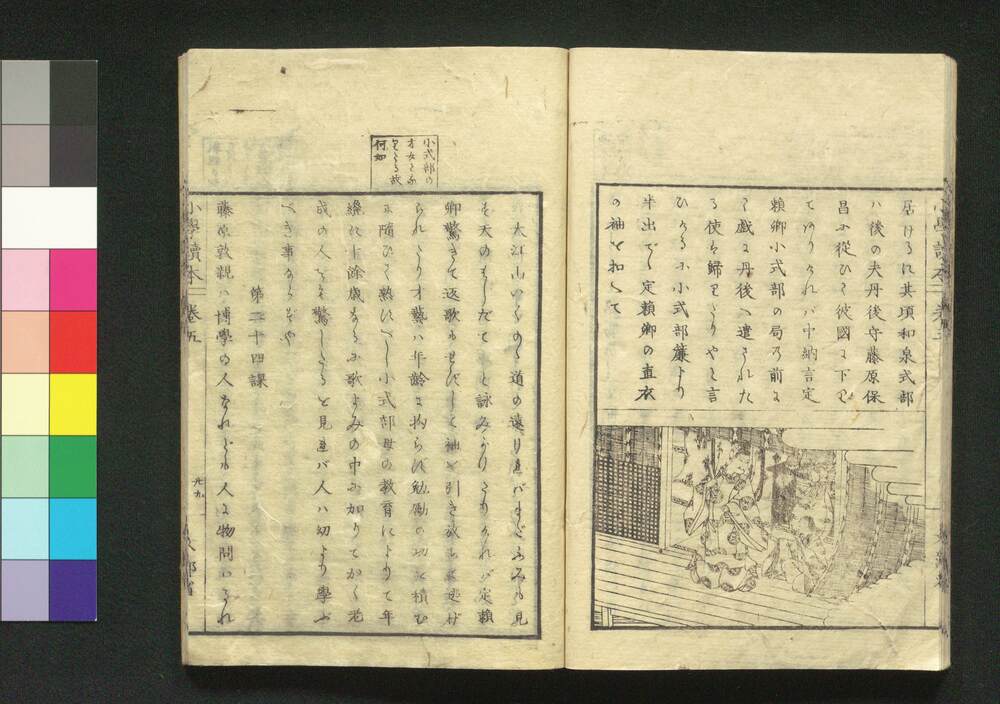 居けるに其頃和泉式部
ハ後の夫丹後守藤原保
昌に從ひて彼國に下り
てありけれバ中納言定
頼卿小式部の局の前に
て戯に丹後へ遣された
る使は歸りたりやと言
ひけるに小式部簾より
半出でゝ定頼卿の直衣
の袖を扣へて
小式部の
才女となりたる故
何如
大江山いくのゝ道の遠けれバまだふみも見
ず天のはしだて と詠みかけたりけれバ定頼
卿驚きて返歌にも及バずして袖を引き放ちて逃げ
られたり才藝ハ年齢に拘らず勉勵の功を積む
に隨ひて熟すべし小式部母の教育によりて年
纔に十餘歳ながら歌よみの中に加りてかく老
成の人をも驚したるを見れバ人ハ幼より學ぶ
べき事ならずや
第二十四課
藤原敦親ハ博學の人なれども人に物問はるれ
小學讀本 卷五
九